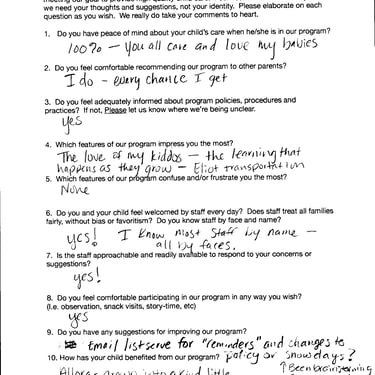 we need your thoughts and suggestions, not your identity. Please elaborate on each
question as you wish. We really do take your comments to heart.
1. Do you have peace of mind about your child's care when he/she is in our program?
100% – you all care and love my babies
2. Do you feel comfortable recommending our program to other parents?
I do – every chance I get
3. Do you feel adequately informed about program policies, procedures and
practices? If not, Please let us know where we're being unclear.
yes
4. Which features of our program impress you the most?
The love of my kiddos – the learning that
happens as they grow – Eliot transportation
5. Which features of our program confuse and/or frustrate you the most?
None
6. Do you and your child feel welcomed by staff every day? Does staff treat all families
fairly, without bias or favoritism? Do you know staff by face and name?
yes! I know most staff by name –
all by faces.
7. Is the staff approachable and readily available to respond to your concerns or
suggestions?
yes!
8. Do you feel comfortable participating in our program in any way you wish?
(I.e. observation, snack visits, story-time, etc)
yes
9. Do you have any suggestions for improving our program?
Email listserve for "reminders" and changes to
policy or snow days?
10. How has your child benefited from our program?
↑ Been brainstorming